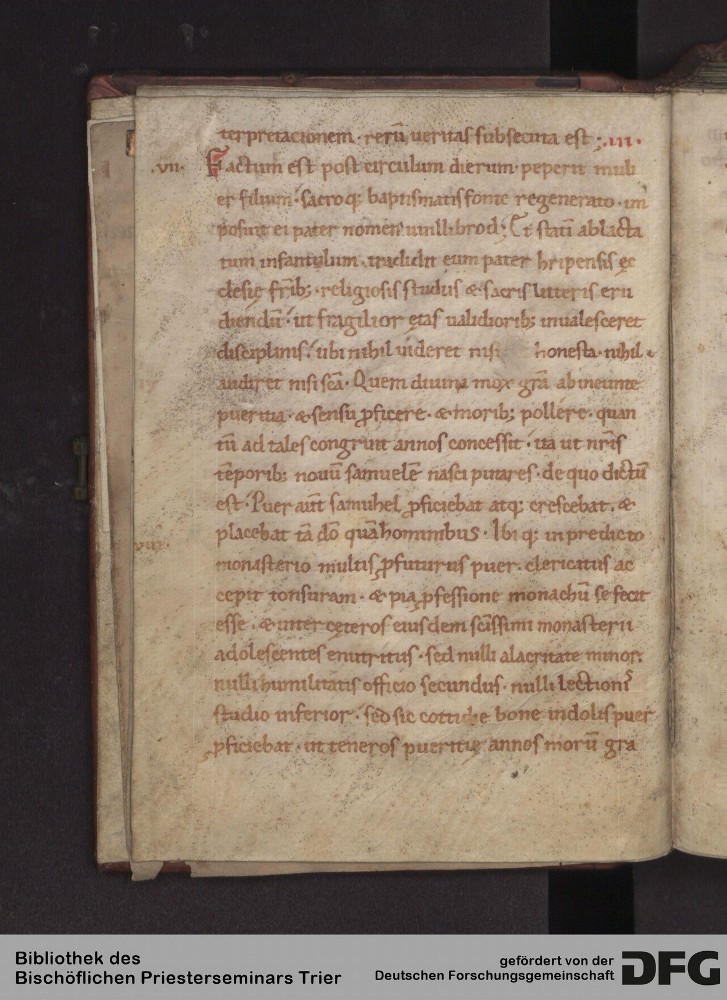 terpretacionem · rerū ueritas subsecuta est ; .III.
.VII. Factum est post circulum dierum · peperit muli
er filium · sacroq; baptismatis fonte regenerato · im
posuit ei pater nomen uuillibrod ; Et statī ablacta
tum infantulum · tradidit eum pater hripensis ęc
clesię fr̄ib; · religiosis studiis & sacris litteris eru
diendū · ut fragilior ętas ualidiorib; inualesceret
disciplinis · ubi nihil uideret nisi honesta · nihil
audiret nisi sc̄a · Quem diuina mox gr̄a ab ineunte
pueritia · & sensu ꝓficere · & morib; pollere · quan
tū ad tales congruit annos concessit · ita ut nr̄is
tēporib; nouū samuelē nasci putares · de quo dictū
est · Puer aūt samuhel ꝓficiebat atq; crescebat · &
placebat tā dō quā hominibus · Ibiq; in predicto
.VIII. monasterio multis ꝓfuturus puer · clericatus ac
cepit tonsuram · & pia ꝓfessione monachū se fecit
esse · & inter cęteros eiusdem sc̄issimi monasterii
adolescentes enutritus · sed nulli alacritate minor ·
nulli humilitatis officio secundus · nulli lectionis
studio inferior · sed sic cottidie bone indolis puer
ꝓficiebat · ut teneros pueritię annos morū gra
Bibliothek des
Bischöflichen Priesterseminars Trier
gefördert von der
Deutschen Forschungsgemeinschaft
DFG